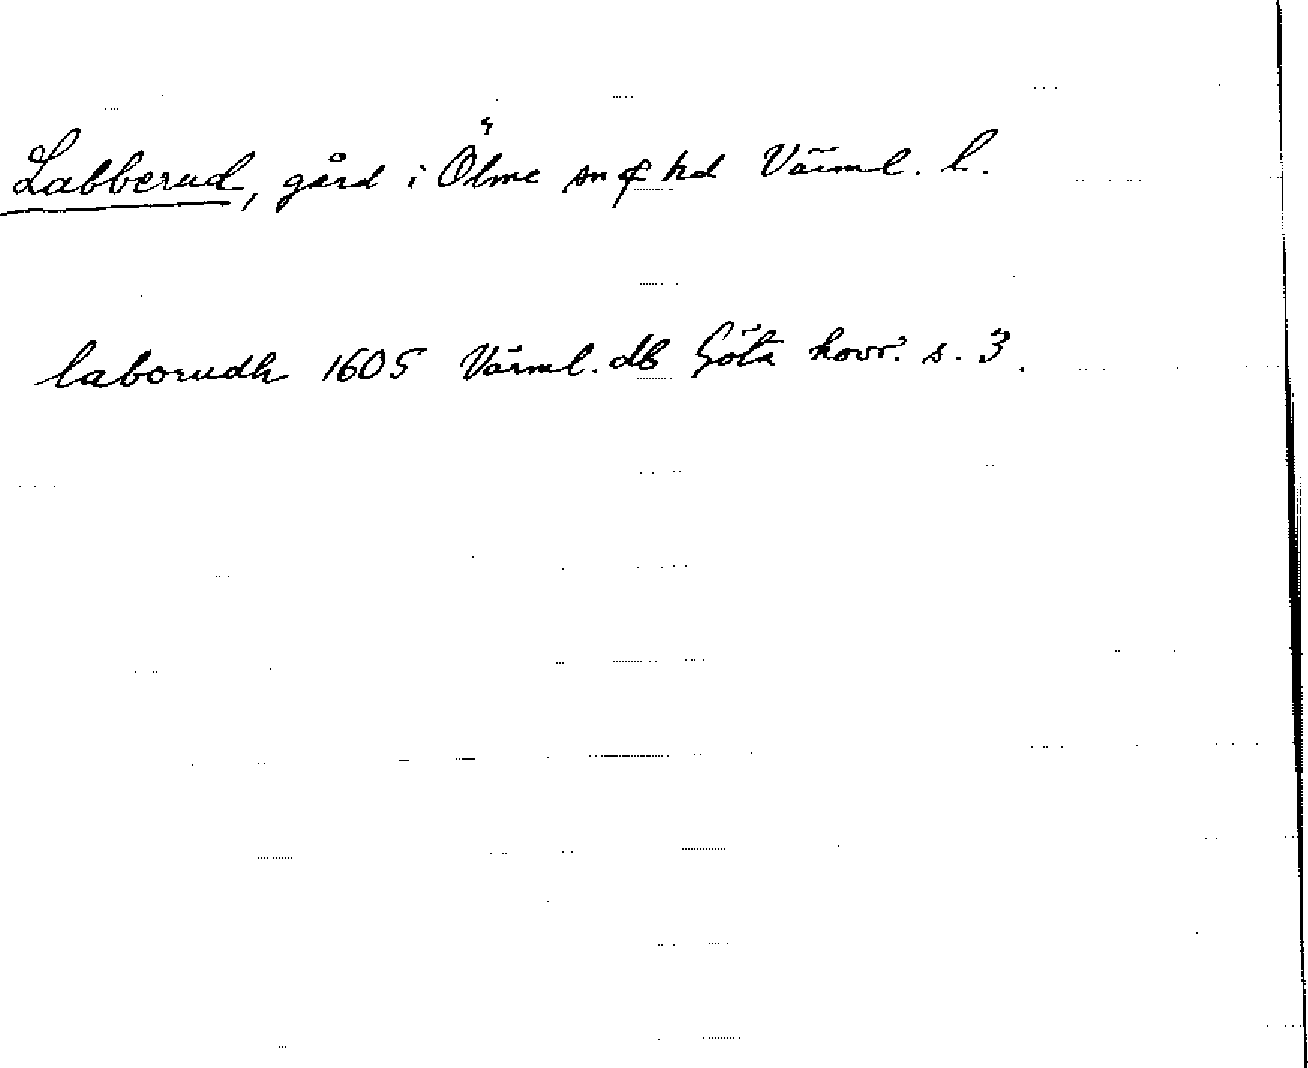 Labberud, gård i Ölme sn & hd Värml. l.
laborudh 1605 Värml. db Göta hovr. s. 3.